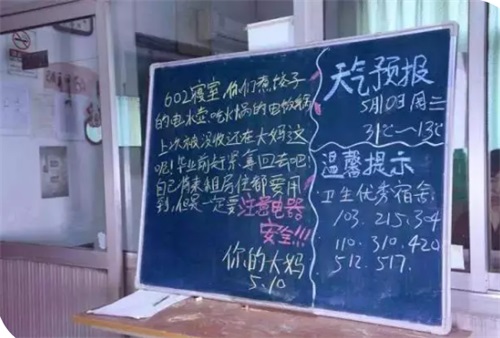 602寝室 你们煮饺子
的电水壶 吃火锅的电饭锅
上次被没收还在大妈这
呢!毕业前记得要回去吧!
自己将来租房住都要用
到,但是一定要注意电器
安全!!!
你的大妈
5.10
天气预报
5月10日 周二
31℃~13℃
温馨提示
卫生优秀宿舍:
103. 215. 304
110. 310. 420
512. 517.